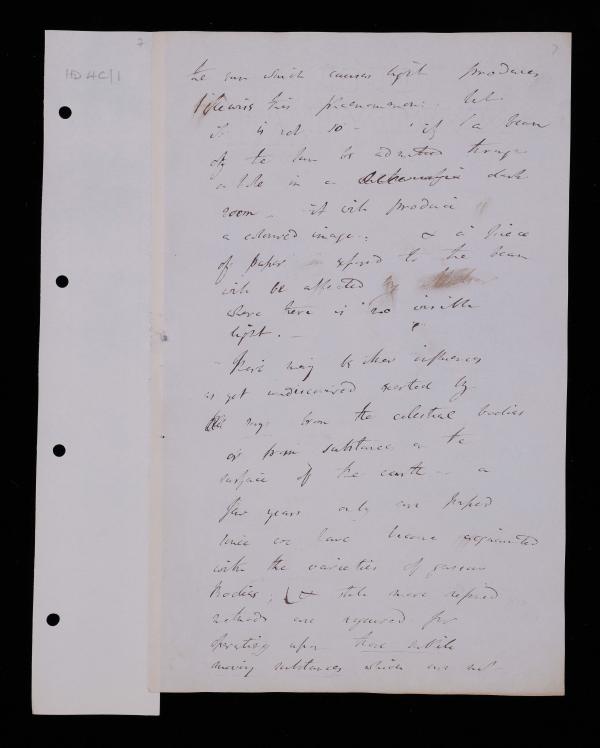 HD 4C/1
7
7
the sun which causes light produces
likewise this phaenomenon. but
it is not so - if a beam
of the sun be admitted through
a hole in a dark
room - it will produce
a coloured image. & a piece
of paper exposed to the beam
will be affected by
where there is no visible
light. -
- There may be other influences
as yet undiscovered exerted by
rays from the celestial bodies
or from substances on the
surface of the earth - a
few years only are passed
since we have become acquainted
with the varieties of gaseous
Bodies; & still more refined
methods are required for
operating upon those subtile
moving substances which are not